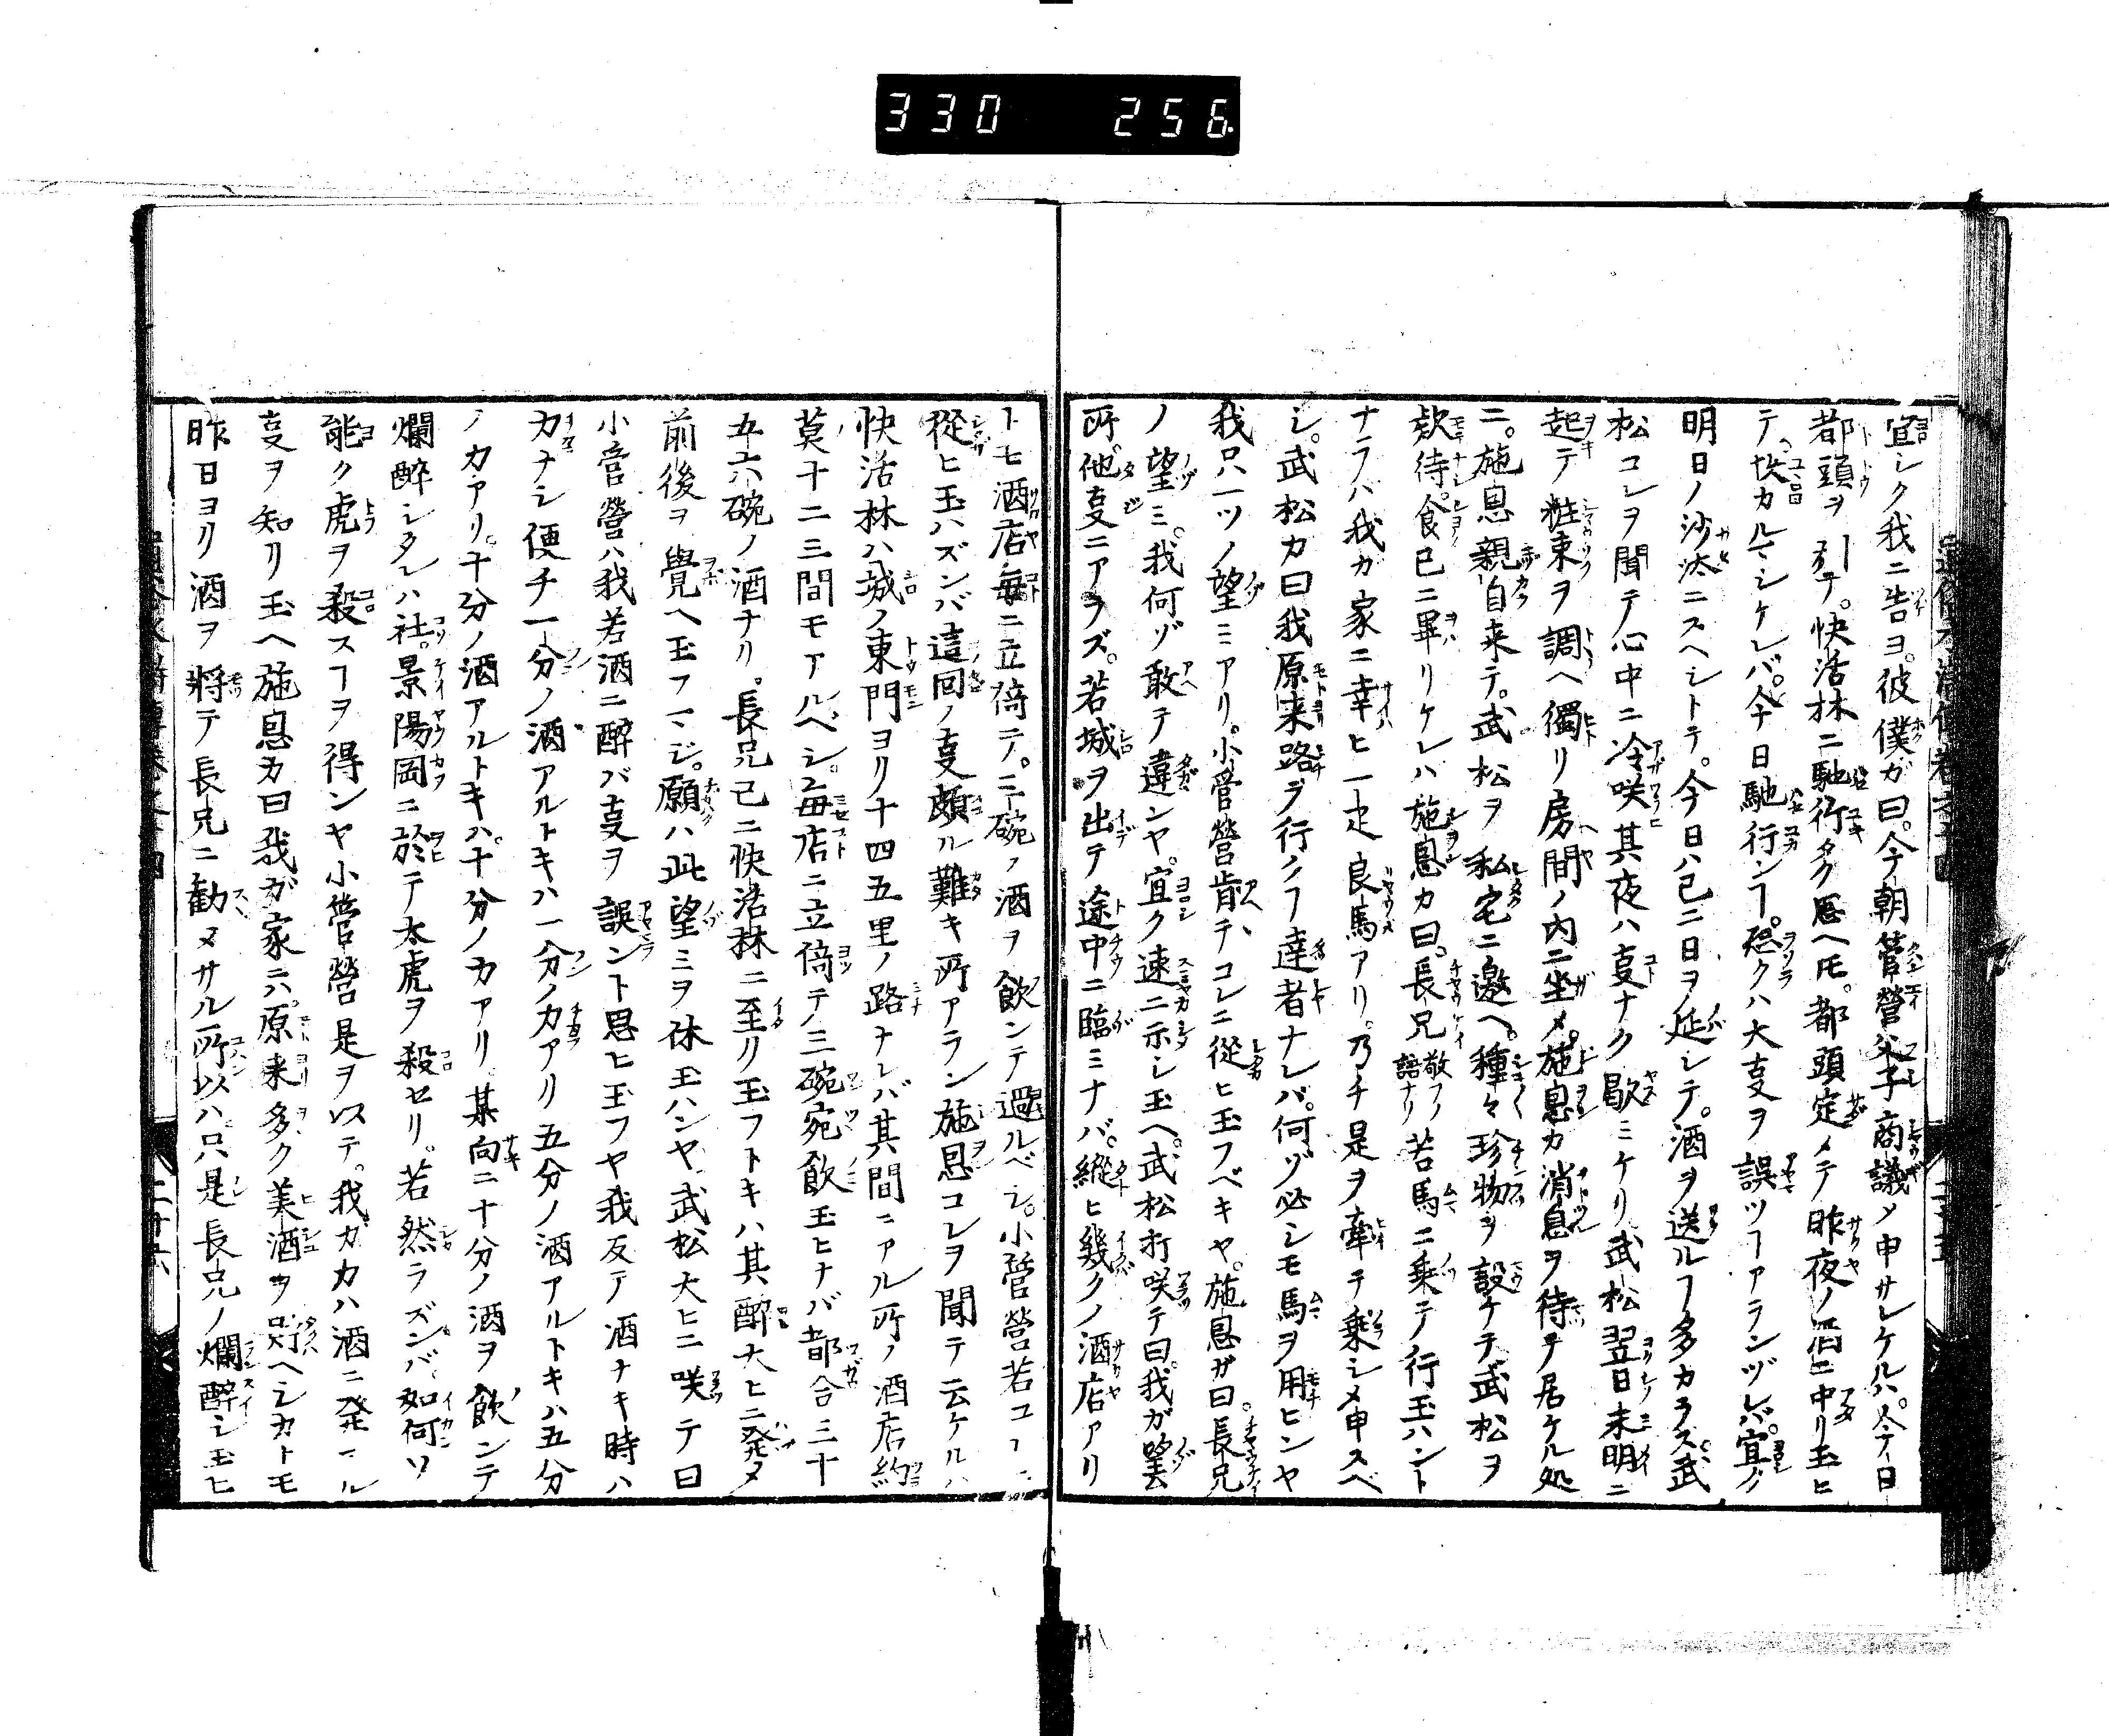 330 256
宜シク我ニ告ヨ。彼僕ガ曰。今朝管營父子商議メ申サレケルハ。今日
都頭ヲ引テ。快活林ニ馳行タク思ヘ𪜈。都頭定メテ昨夜ノ酒ニ中リ玉ヒ
テ。快カルマシケレバ。今日馳行ンヿ。恐クハ大叓ヲ誤ツヿアランヅレバ。宜ク
明日ノ沙汰ニスヘシトテ。今日ハ已ニ日ヲ延シテ。酒ヲ送ルヿ多カラス武
松コレヲ聞テ心中ニ冷咲其夜ハ叓ナク歇ミケリ武松翌日未明ニ
起テ粧束ヲ調ヘ獨リ房間ノ内ニ坐メ。施恩カ消息ヲ待チ居ケル処
ニ。施恩親自来テ。武松ヲ私宅ニ邀ヘ。種々珍物ヲ設ケチ武松ヲ
欵待。食已ニ畢リケレハ施恩カ曰。長兄敬フノ語ナリ若馬ニ乗テ行玉ハント
ナラハ我カ家ニ幸ヒ一疋良馬アリ。乃チ是ヲ牽チ乗シメ申スベ
シ。武松カ曰我原来路ヲ行クヿ達者ナレバ。何ヅ必シモ馬ヲ用ヒンヤ
我只一ツノ望ミアリ。小管營肯チコレニ從ヒ玉フベキヤ。施恩ガ曰。長兄
ノ望ミ。我何ヅ敢テ違ンヤ。宜ク速ニ示シ玉ヘ。武松打咲テ曰。我ガ望
所。他叓ニアラズ。若城ヲ出テ途中ニ臨ミナバ。縱ヒ幾クノ酒店アリ
トモ酒店毎ニ立倚テ。三碗ノ酒ヲ飲ンテ過ルベシ。小管營若コヽニ
從ヒ玉ハズンバ這回ノ叓頗ル難キ所アラン施恩コレヲ聞テ云ケルハ
快活林ハ城ノ東門ヨリ十四五里ノ路ナレバ其間ニアル所ノ酒店約
莫十二三間モアルベシ。毎店ニ立倚テ三碗宛飲玉ヒナバ都合三十
五六碗ノ酒ナリ。長兄已ニ快活林ニ至リ玉フトキハ其醉大ヒニ発メ
前後ヲ覺ヘ玉フマジ。願ハ此望ミヲ休玉ハンヤ武松大ヒニ咲テ曰
小管營ハ我若酒ニ醉バ叓ヲ誤ント思ヒ玉フヤ我反テ酒ナキ時ハ
力ナシ便チ一分ノ酒アルトキハ一分ノ力アリ五分ノ酒アルトキハ五分
ノ力アリ。十分ノ酒アルトキハ。十分ノ力アリ。某向ニ十分ノ酒ヲ飲ンテ
爛醉シタレハ社。景陽岡ニ於テ太虎ヲ殺セリ。若然ラズンバ如何ソ
能ク虎ヲ殺スヿヲ得ンヤ小管營是ヲ以テ。我ガ力ハ酒ニ発ール
叓ヲ知リ玉ヘ施恩カ曰我ガ家ニハ。原来多ク美酒ヲ貯ヘシカトモ
昨日ヨリ酒ヲ將テ長兄ニ勸メサル所以ハ只是長兄ノ爛醉シ玉ヒ
二十六